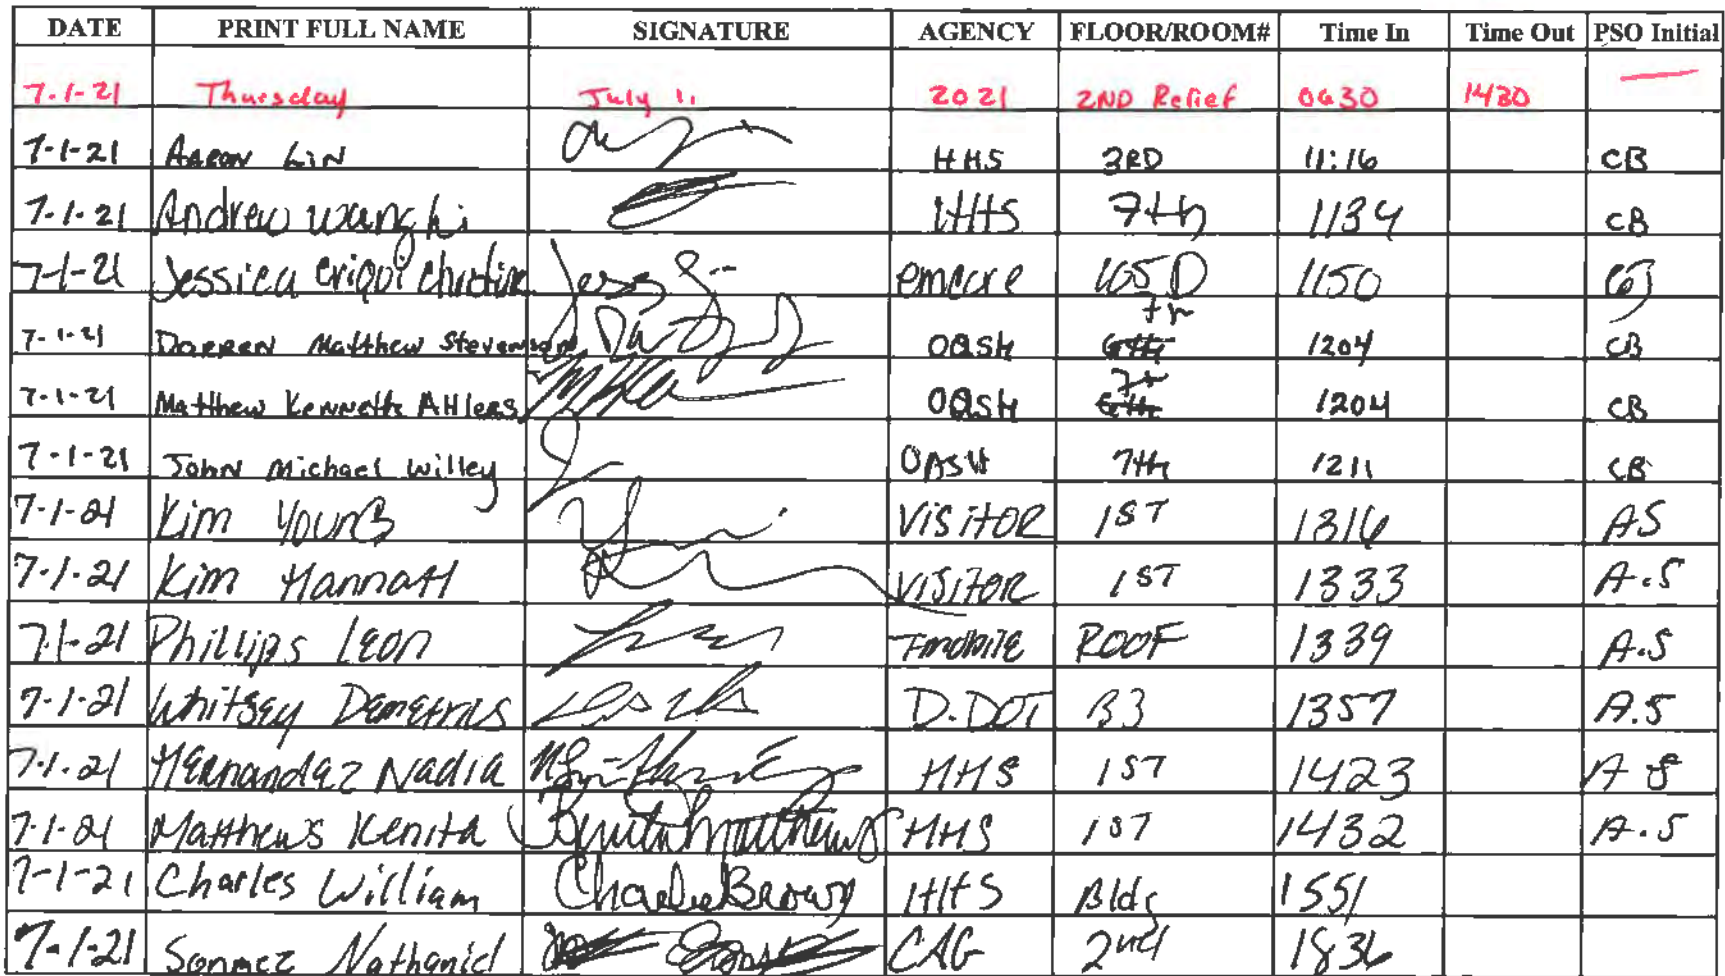 DATE PRINT FULL NAME SIGNATURE AGENCY FLOOR/ROOM# Time In Time Out PSO Initial
7-1-21 Thursday July 1, 2021 2ND Relief 0630 1430 —
7-1-21 AARON LIN HHS 3RD 11:16 CB
7-1-21 Andrew HHS 7th 1134 CB
7-1-21 Jessica Criqui Christine 165D 1150
7-1-21 DARREN Matthew Stevenson OASH 7th 1204 CB
7-1-21 Matthew Kenneth AHlers OASH 7th 1204 CB
7-1-21 John Michael Willey OASH 7th 1211 CB
7-1-21 Kim Young VISITOR 1ST 1316 AS
7-1-21 Kim HannaH VISITOR 1ST 1333 A.S
7-1-21 Phillips Leon Tmobile ROOF 1339 A.S
7-1-21 Whitsey Demetrius D.DOT B3 1357 A.S
7-1-21 Hernandez Nadia HHS 1ST 1423 A S
7-1-21 Matthews Kenita Kenita Matthews HHS 1ST 1432 A.S
7-1-21 Charles William Charlie Brown HHS Bldg 1551
7-1-21 Sonmez Nathaniel CAG 2nd 1836